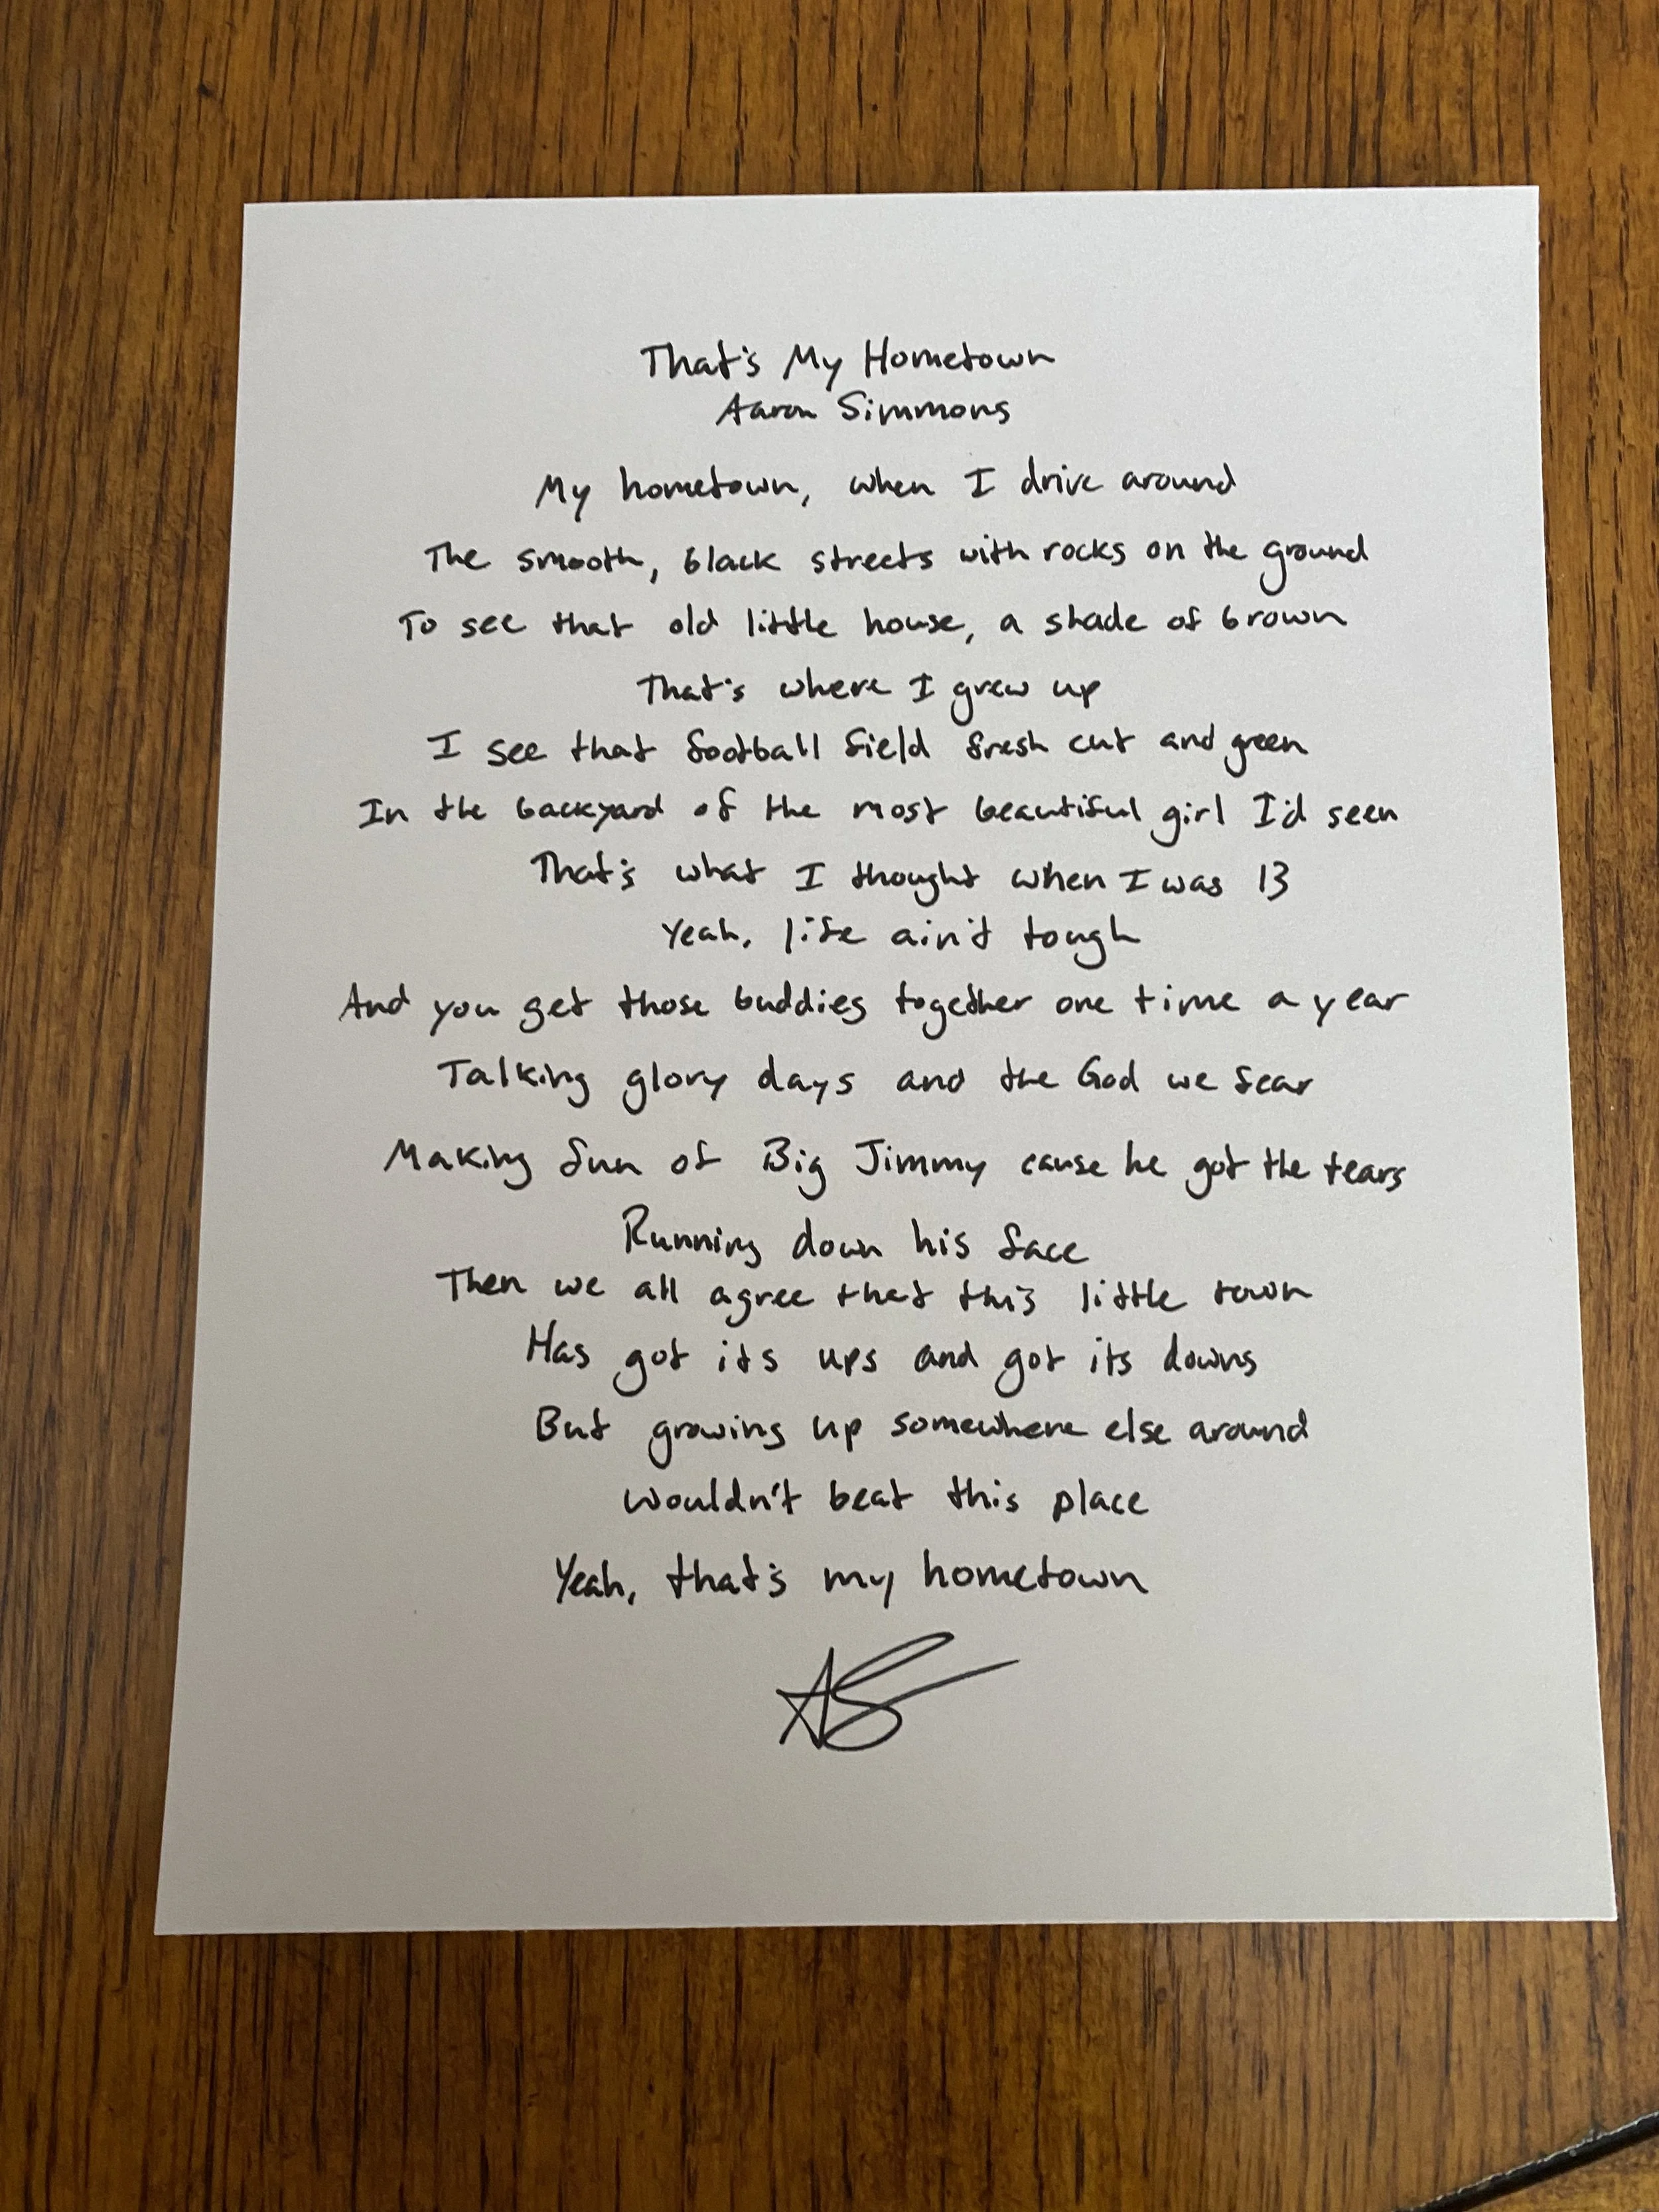 That's My Hometown
Aaron Simmons
My hometown, when I drive around
The smooth, black streets with rocks on the ground
To see that old little house, a shade of brown
That's where I grew up
I see that football field fresh cut and green
In the backyard of the most beautiful girl I'd seen
That's what I thought when I was 13
Yeah, life ain't tough
And you get those buddies together one time a year
Talking glory days and the God we fear
Making fun of Big Jimmy cause he got the tears
Running down his face
Then we all agree that this little town
Has got its ups and got its downs
But growing up somewhere else around
Wouldn't beat this place
Yeah, that's my hometown
AS